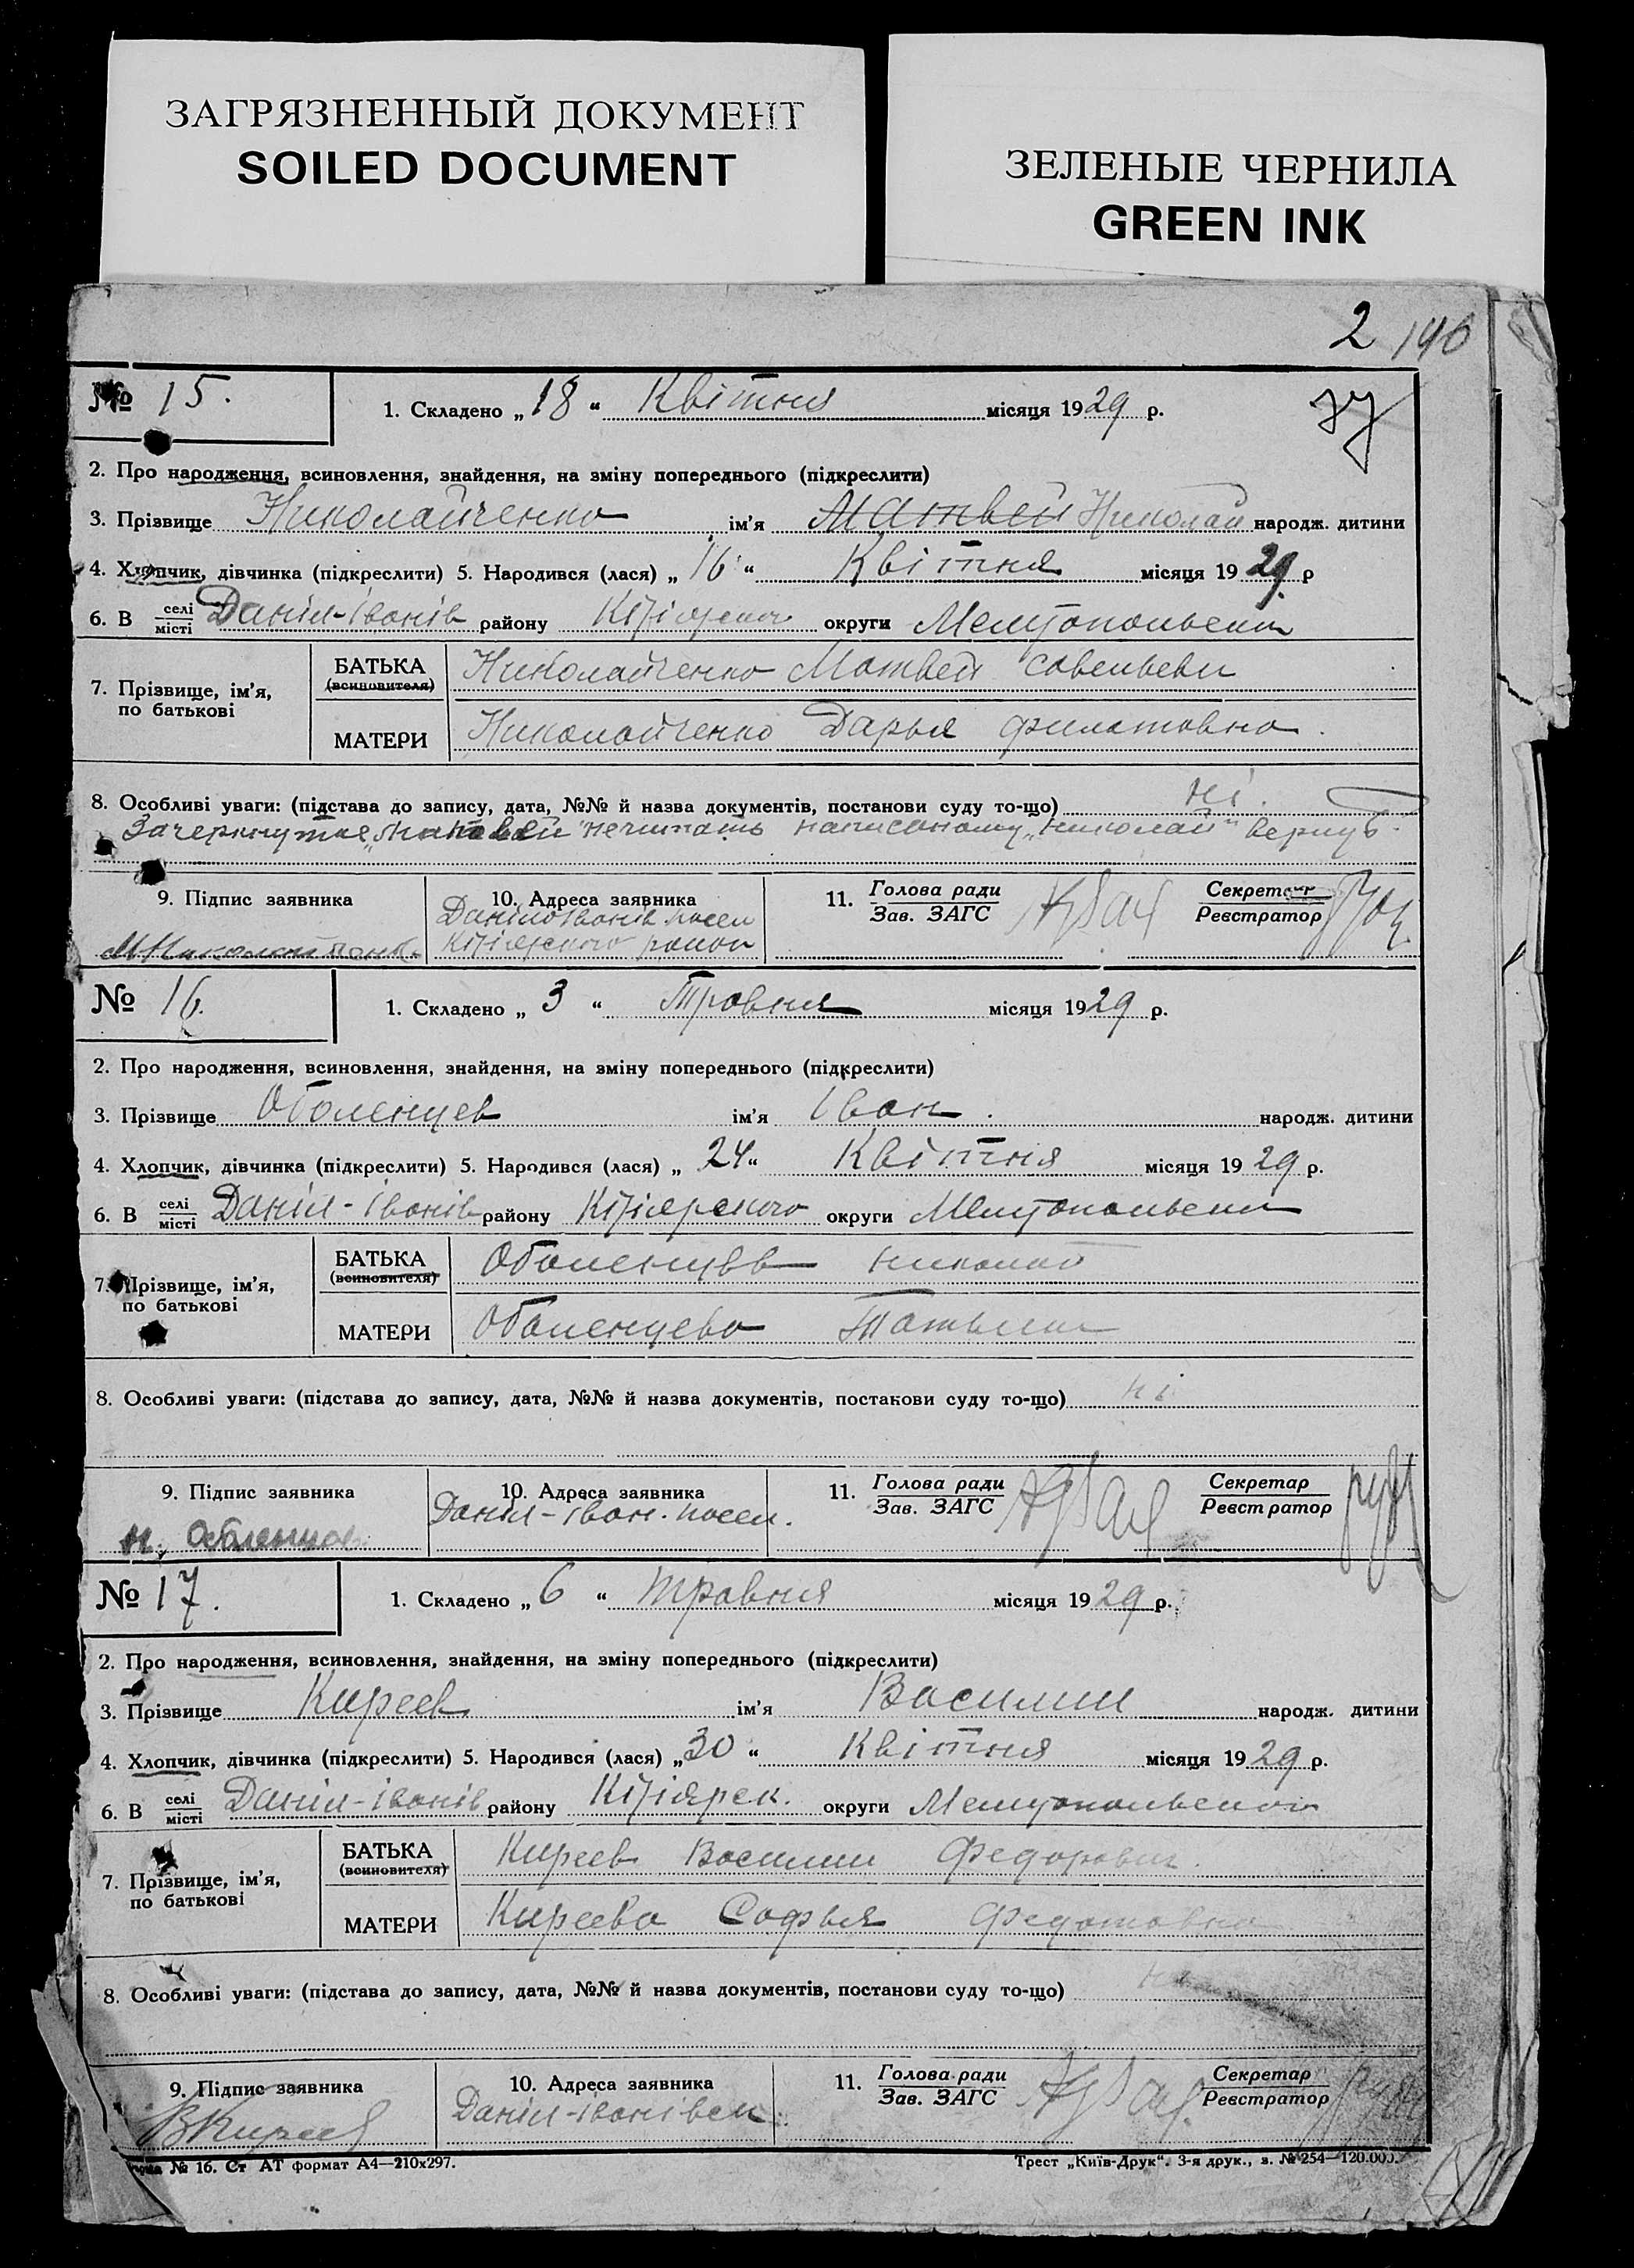 ЗАГРЯЗНЕННЫЙ ДОКУМЕНТ
SOILED DOCUMENT
ЗЕЛЕНЫЕ ЧЕРНИЛА
GREEN INK
2 140
№ 15. 1. Складено „18“ Квітня місяця 1929 р.
2. Про народження, всиновлення, знайдення, на зміну попереднього (підкреслити)
3. Прізвище Николайченко ім'я Матвей Николай народж. дитини
4. Хлопчик, дівчинка (підкреслити) 5. Народився (лася) „16“ Квітня місяця 1929 р
6. В селі/місті Даніл-Іванів району округи
7. Прізвище, ім'я, по батькові
БАТЬКА (всиновителя) Николайченко Матвей Савельеви
МАТЕРИ Николайченко Дарья Филатовна.
8. Особливі уваги: (підстава до запису, дата, №№ й назва документів, постанови суду то-що) Ні.
Зачеркнутое „Матвей“ нечитать написаному „Николай“
9. Підпис заявника 10. Адреса заявника 11. Голова ради Зав. ЗАГС Секретар Реєстратор
№ 16. 1. Складено „3“ Травня місяця 1929 р.
2. Про народження, всиновлення, знайдення, на зміну попереднього (підкреслити)
3. Прізвище Оболенцев ім'я Іван. народж. дитини
4. Хлопчик, дівчинка (підкреслити) 5. Народився (лася) „24“ Квітня місяця 1929 р.
6. В селі/місті Даніл-Іванів району округи
7. Прізвище, ім'я, по батькові
БАТЬКА (всиновителя) Оболенцев Николай
МАТЕРИ Оболенцева Татьяна
8. Особливі уваги: (підстава до запису, дата, №№ й назва документів, постанови суду то-що) ні
9. Підпис заявника 10. Адреса заявника 11. Голова ради Зав. ЗАГС Секретар Реєстратор
Даніл-Іван. посел.
№ 17. 1. Складено „6“ травня місяця 1929 р.
2. Про народження, всиновлення, знайдення, на зміну попереднього (підкреслити)
3. Прізвище Киреев ім'я Василий народж. дитини
4. Хлопчик, дівчинка (підкреслити) 5. Народився (лася) „30“ Квітня місяця 1929 р.
6. В селі/місті Даніл-Іванів району округи Мелитопольского
7. Прізвище, ім'я, по батькові
БАТЬКА (всиновителя) Киреев Василий Федорович.
МАТЕРИ Киреева Софья Федотовна
8. Особливі уваги: (підстава до запису, дата, №№ й назва документів, постанови суду то-що)
9. Підпис заявника 10. Адреса заявника 11. Голова ради Зав. ЗАГС Секретар Реєстратор
В Киреев
№ 16. Ст АТ формат А4—210х297. Трест „Київ-Друк“. 3-я друк., з. № 254—120.000.